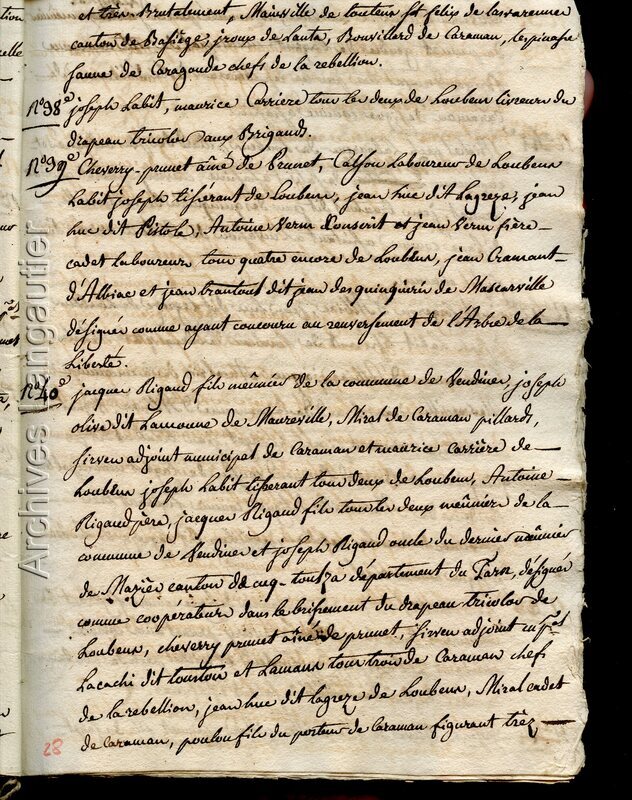 et très-Brutalement, Mainville de toutens st felix de lavarenne
canton de Basiège, jroup de Lanta, Bouvillard de Caraman, lespinasse
fauré de Caragoude chefs de la rebellion.
N°98e joseph Labit, maurice Carriere tous les deux de Loubens livreurs du
drapeau tricolor aux Brigands.
N°39e Cheverry-prunet aîné de Prunet, Calson Laboureur de Loubens
Labit joseph tisserant de Loubens, jean huc dit Lagreze, jean
huc dit Pistole, Antoine Verin Conscrit et jean Verin frère
cadet laboureur tous quatre encore de Loubens, jean Cramant
d'Albiac et jean trantoul dit jean des quinquiris de Mascarville
désignés comme ayant concouru au renversement de l'Arbre de la
Liberté.
N°40e jacques Rigaud fils meûnier de la commune de Vendines, joseph
olive dit Lamoune de Maureville, Miral de Caraman pillards,
sirven adjoint municipal de Caraman et maurice carrière de
Loubens joseph Labit tisserant tous deux de Loubens, Antoine
Rigaud père, jacques Rigaud fils tous les deux meûniers de la
commune de Vendines et joseph Rigaud oncle du dernier meûnier
de canton de cuq-toulza département du Tarn, désignés
comme coopérateurs dans le brisement du drapeau tricolor de
Loubens, cheverry prunet aîné de prunet, sirven adjoint mpal
Lacachi dit et Lamans tous trois de Caraman chefs
de la rebellion, jean huc dit lagreze de Loubens, Miral cadet
de caraman, poulou fils du porteur de caraman figurant très
28
Archives Langautier